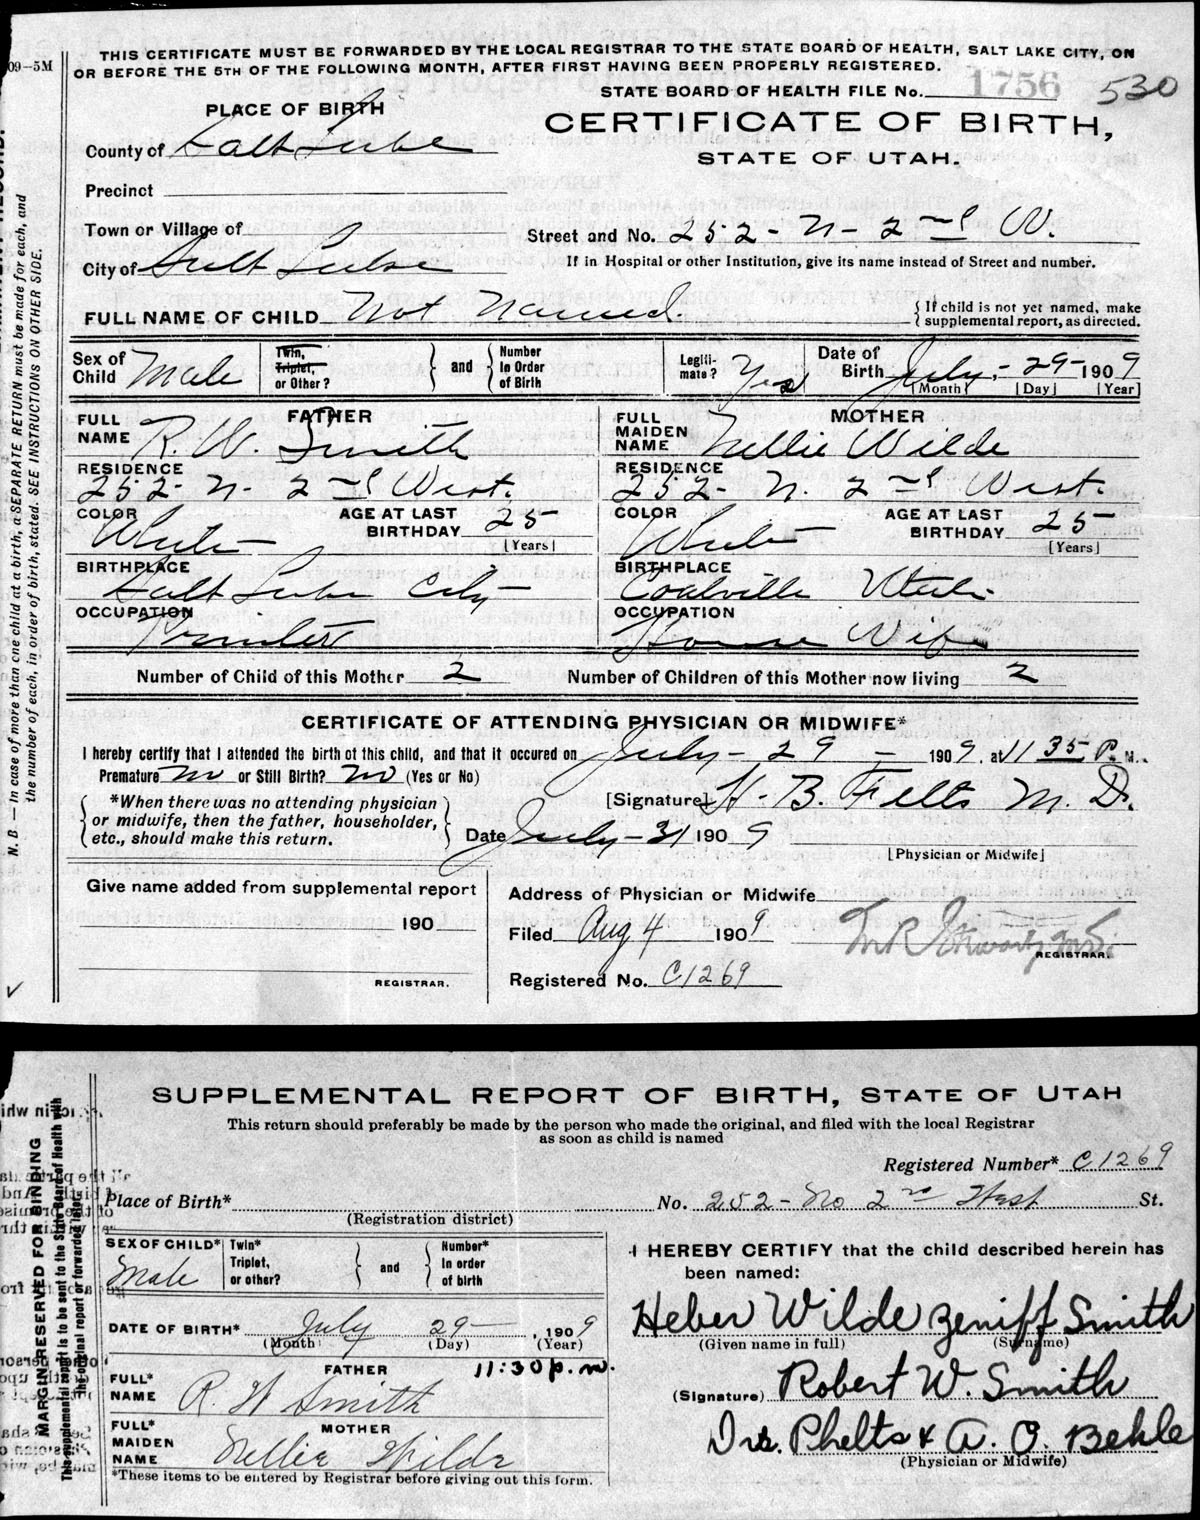 THIS CERTIFICATE MUST BE FORWARDED BY THE LOCAL REGISTRAR TO THE STATE BOARD OF HEALTH, SALT LAKE CITY, ON
OR BEFORE THE 5TH OF THE FOLLOWING MONTH, AFTER FIRST HAVING BEEN PROPERLY REGISTERED.
09-5M
STATE BOARD OF HEALTH FILE No. 1756 530
PLACE OF BIRTH
CERTIFICATE OF BIRTH,
STATE OF UTAH.
County of Salt Lake
Precinct
Town or Village of
Street and No. 252 - N - 2nd W.
City of Salt Lake
If in Hospital or other Institution, give its name instead of Street and number.
FULL NAME OF CHILD Not Named.
{If child is not yet named, make
supplemental report, as directed.
Sex of Child Male
Twin, Triplet, or Other?
and
Number In Order of Birth
Legiti-mate? Yes
Date of Birth July - 29 - 1909
[Month] [Day] [Year]
FATHER
FULL NAME R. W. Smith
RESIDENCE
252 - N. 2nd West.
COLOR White
AGE AT LAST BIRTHDAY 25
[Years]
BIRTHPLACE
Salt Lake City
OCCUPATION
MOTHER
FULL MAIDEN NAME Nellie Wilde
RESIDENCE
252 - N. 2nd West.
COLOR White
AGE AT LAST BIRTHDAY 25
[Years]
BIRTHPLACE
Coalville Utah
OCCUPATION
House Wife
Number of Child of this Mother 2
Number of Children of this Mother now living 2
CERTIFICATE OF ATTENDING PHYSICIAN OR MIDWIFE*
I hereby certify that I attended the birth of this child, and that it occured on July - 29 - 1909, at 11 35 P. M.
Premature no or Still Birth? no (Yes or No)
*When there was no attending physician
or midwife, then the father, householder,
etc., should make this return.
[Signature] H. B. Felts M. D.
Date July - 31 1909
[Physician or Midwife]
Give name added from supplemental report
190
REGISTRAR.
Address of Physician or Midwife
Filed Aug 4 1909
REGISTRAR.
Registered No. C1269
N. B. — In case of more than one child at a birth, a SEPARATE RETURN must be made for each, and
the number of each, in order of birth, stated. SEE INSTRUCTIONS ON OTHER SIDE.
SUPPLEMENTAL REPORT OF BIRTH, STATE OF UTAH
This return should preferably be made by the person who made the original, and filed with the local Registrar
as soon as child is named
Registered Number* C1269
Place of Birth*
(Registration district)
No. 252 - No 2nd West St.
SEX OF CHILD* Male
Twin* Triplet, or other?
and
Number* In order of birth
DATE OF BIRTH* July 29 - , 1909
(Month) (Day) (Year)
11:30 p.m.
FATHER
FULL* NAME R. W Smith
MOTHER
FULL* MAIDEN NAME Nellie Wilde
*These items to be entered by Registrar before giving out this form.
I HEREBY CERTIFY that the child described herein has
been named:
Heber Wilde Zeniff Smith
(Given name in full) (Surname)
(Signature) Robert W. Smith
Drs. Phelts & A. O. Behle
(Physician or Midwife)
MARGIN RESERVED FOR BINDING
This supplemental report is to be sent to the State Board of Health with
the original report or forwarded later.